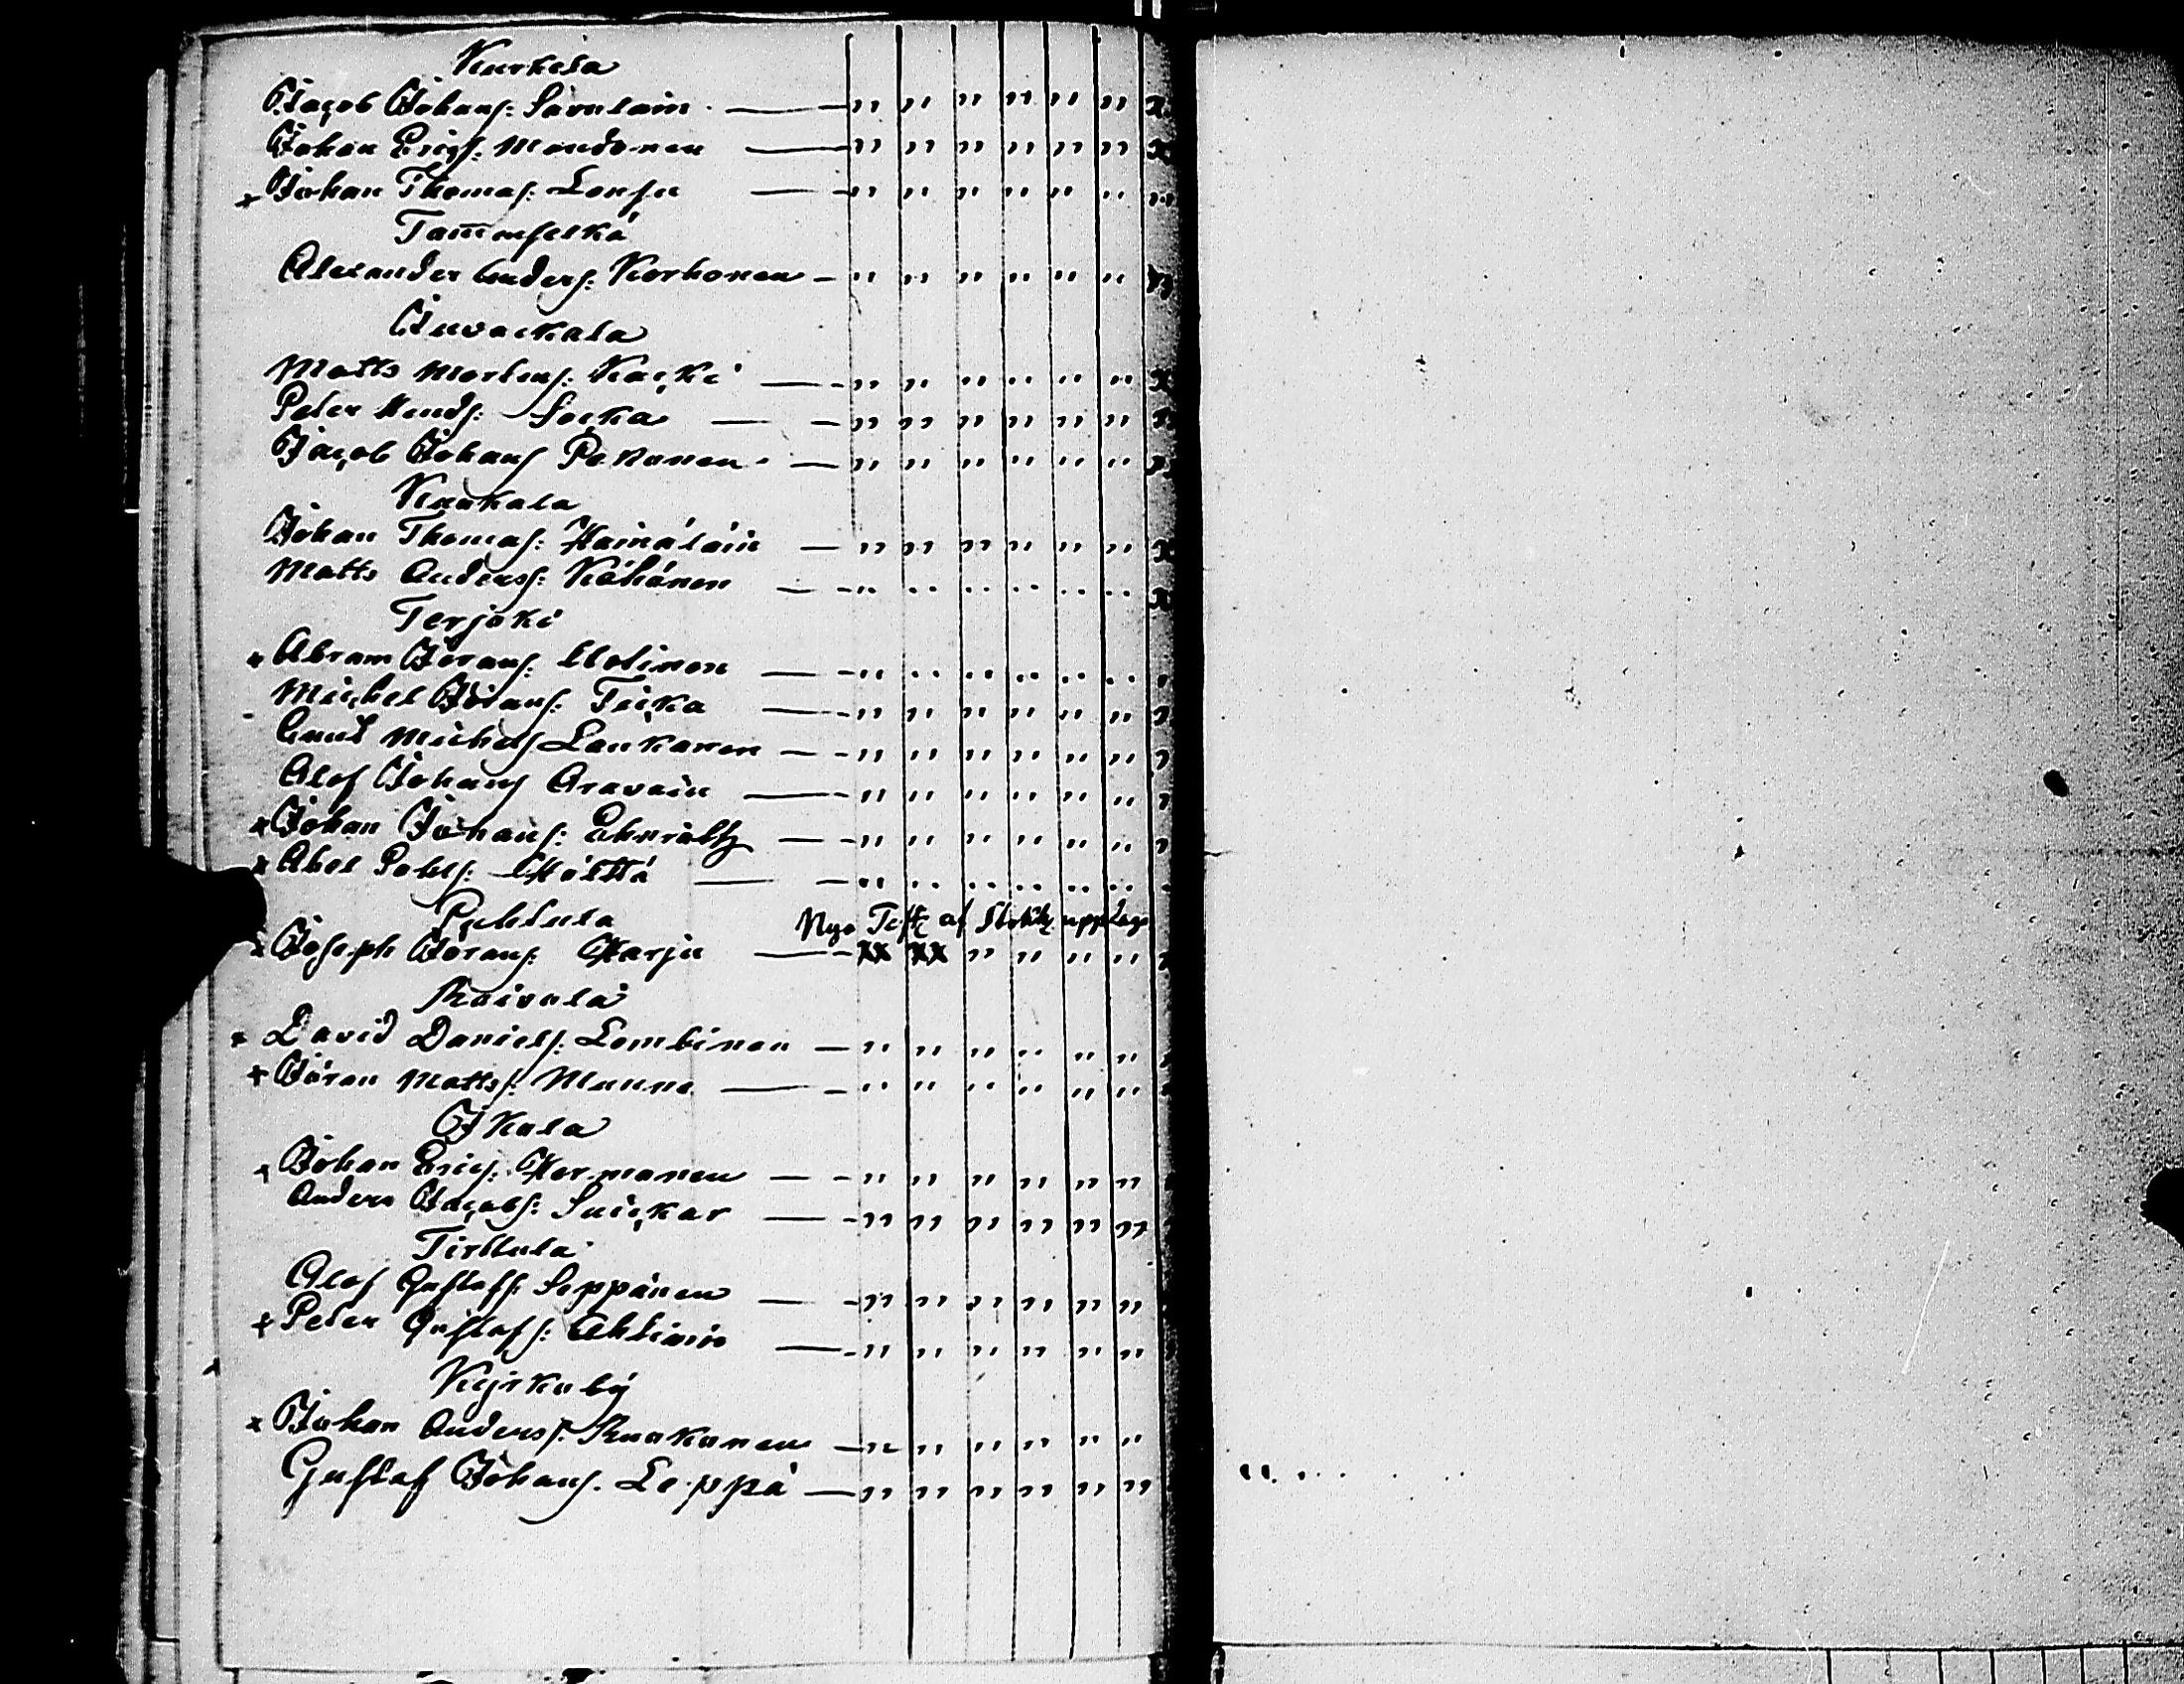 Kurkela
Jacob Johans: Savolain — " " " " " "
Johan Erics: Mondonen — " " " " " "
+ Johan Thomas: Lonsu — " " " " " "
Tam̄enselkä
Alexander Anders: Korhonen — " " " " " "
Juvackala
Matts Mortens: Kacki — " " " " " "
Peter Hends: Socka — " " " " " "
Jacob Johans Pekonen — " " " " " "
Kuokala
Johan Thomas: Hämäläin — " " " " " "
Matts Anderss: Köhönen — " " " " " "
Terjoki
× Abram Jörans: Uotinen — " " " " " "
Michel Jörans: Teicka — " " " " " "
Michels Laukanen — " " " " " "
Olof Johans Oravain — " " " " " "
× Johan Johans: — " " " " " "
× Abel Pohls: Hölttä — " " " " " "
Puhtula Nya af
× Joseph Jörans: Harju — XX XX " " " "
Raivola
× David Daniels: Lembinen — " " " " " "
+ Jöran Matts: Munne — " " " " " "
Ikola
+ Johan Erics: Hermonen — " " " " " "
Anders Jacobs: Suickar — " " " " " "
Tirttula
Olof Gustafs: Seppänen — " " " " " "
+ Peter Gustafs: Ahtiain — " " " " " "
Kyrkoby
× Johan Anderss: Ruokonen — " " " " " "
Gustaf Johans. Leppä — " " " " " "